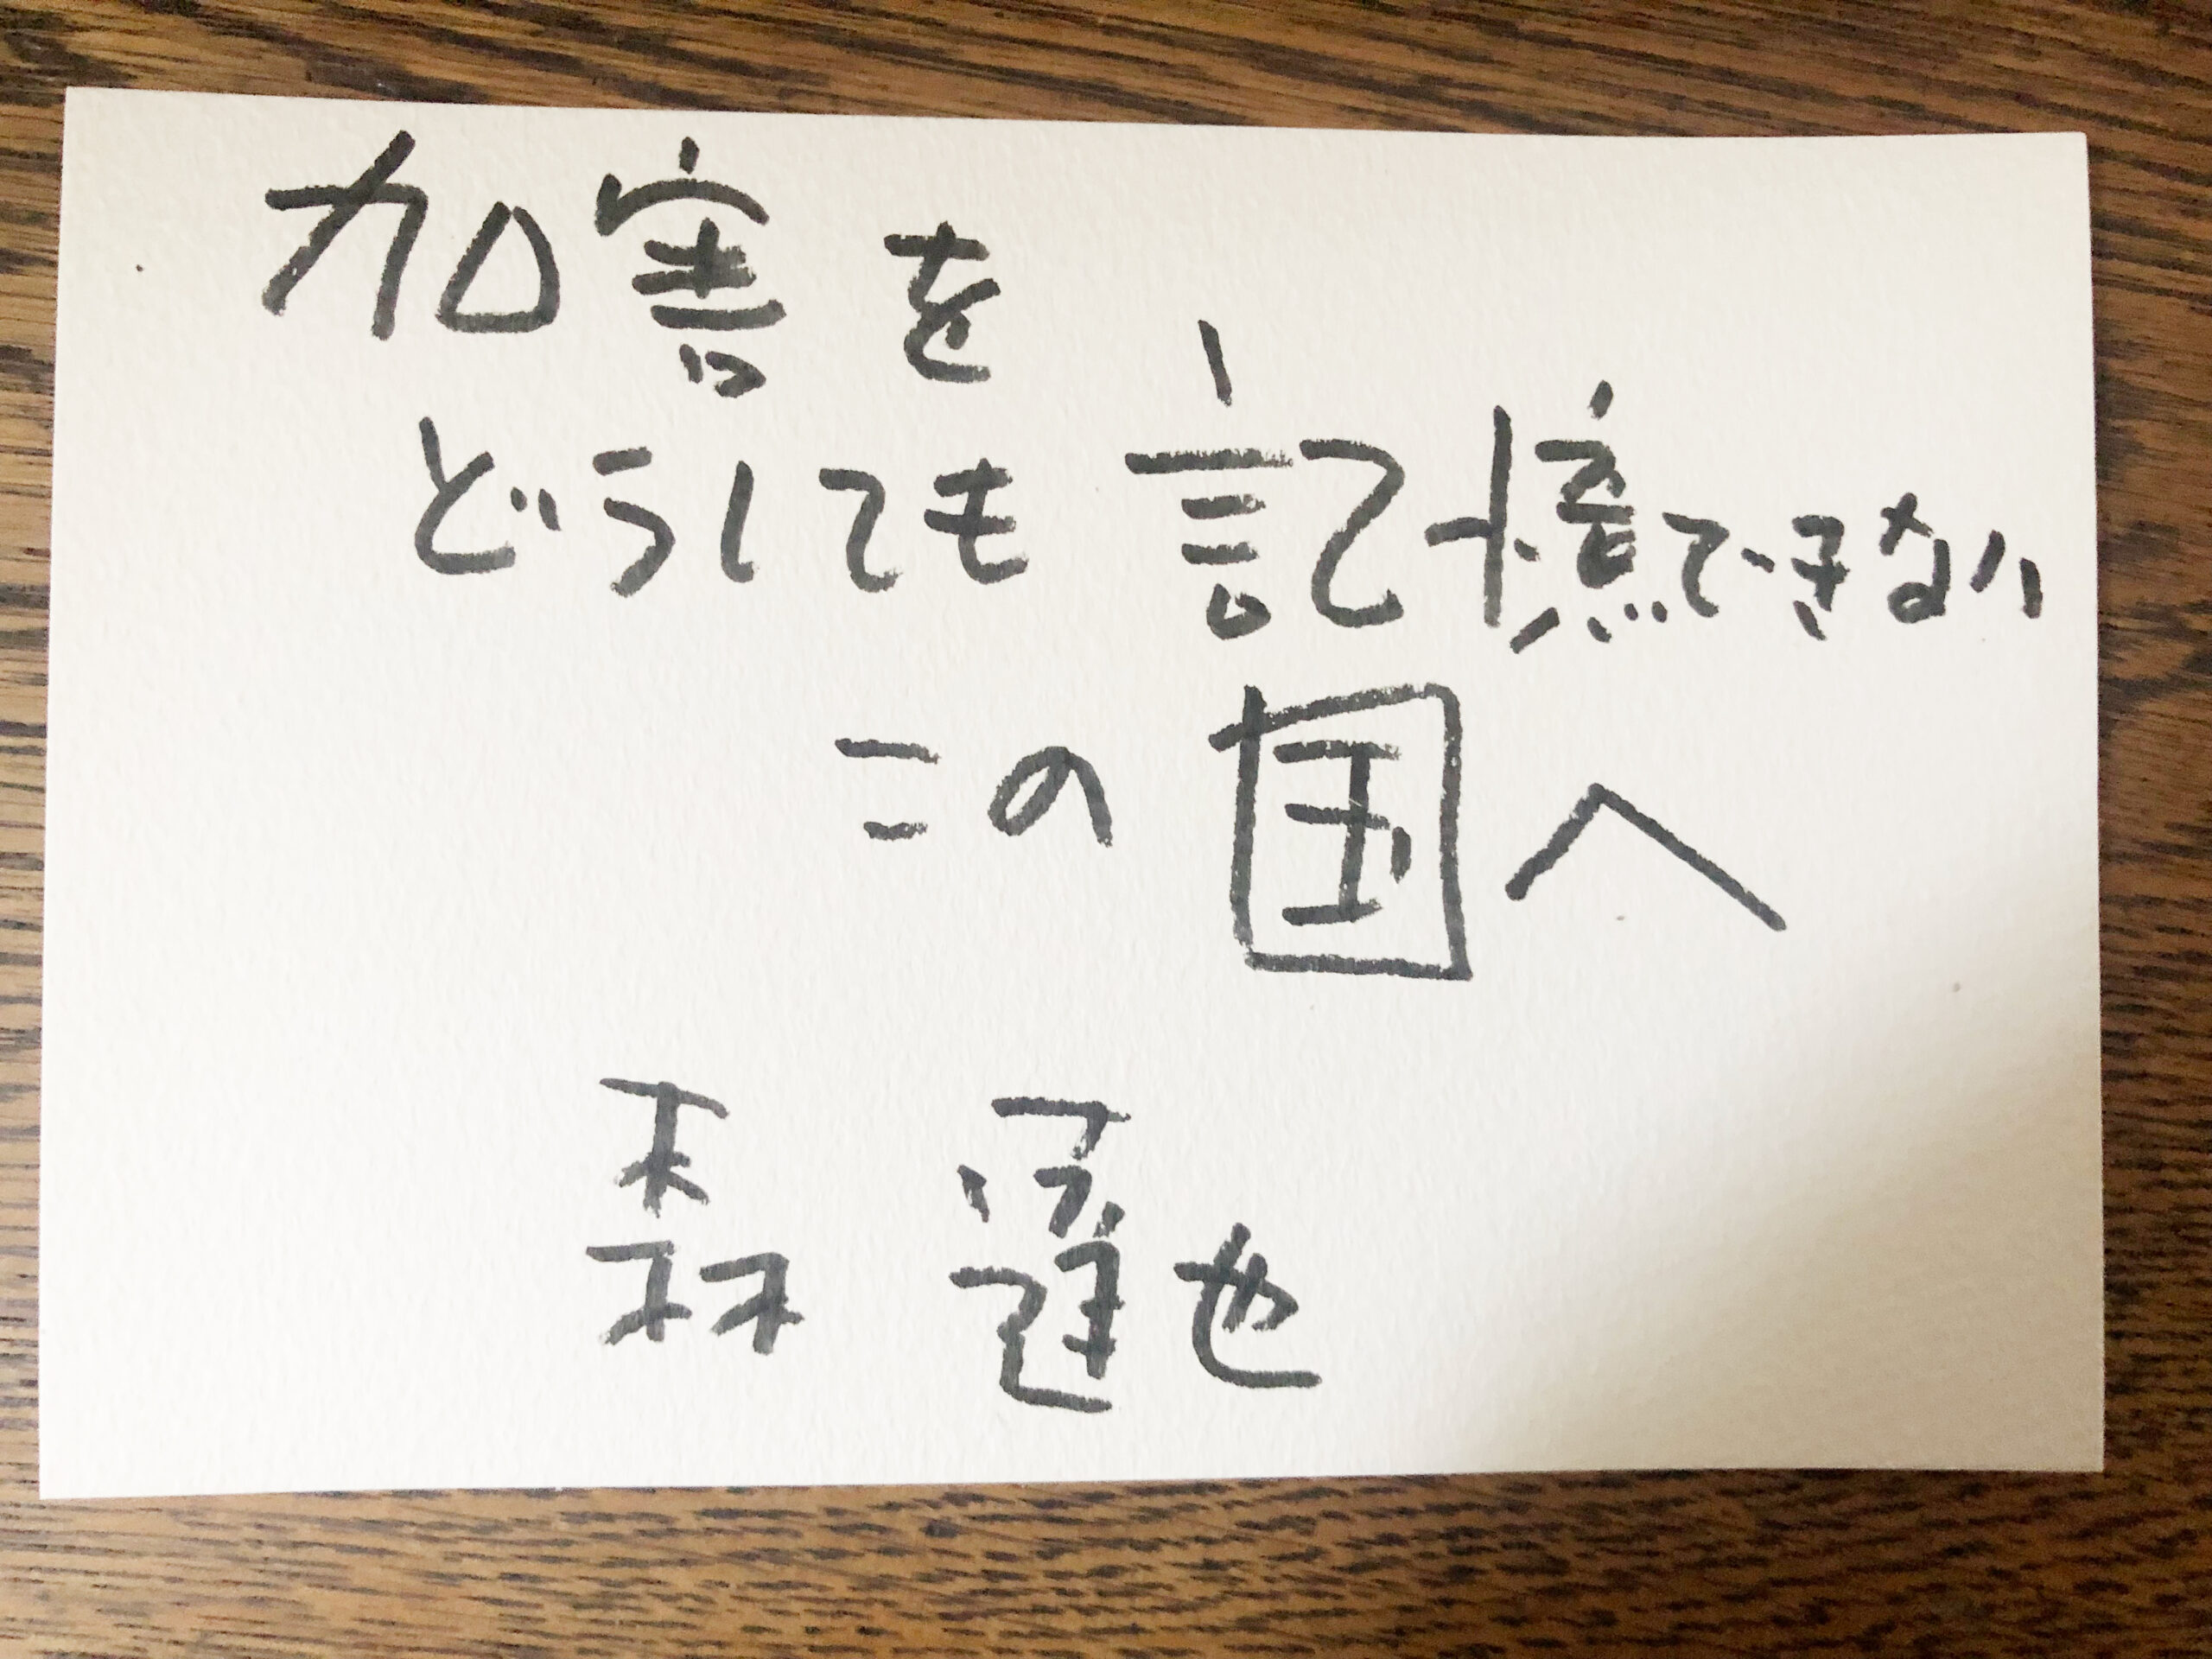 加害を
どうしても記憶できない
この国へ
森達也